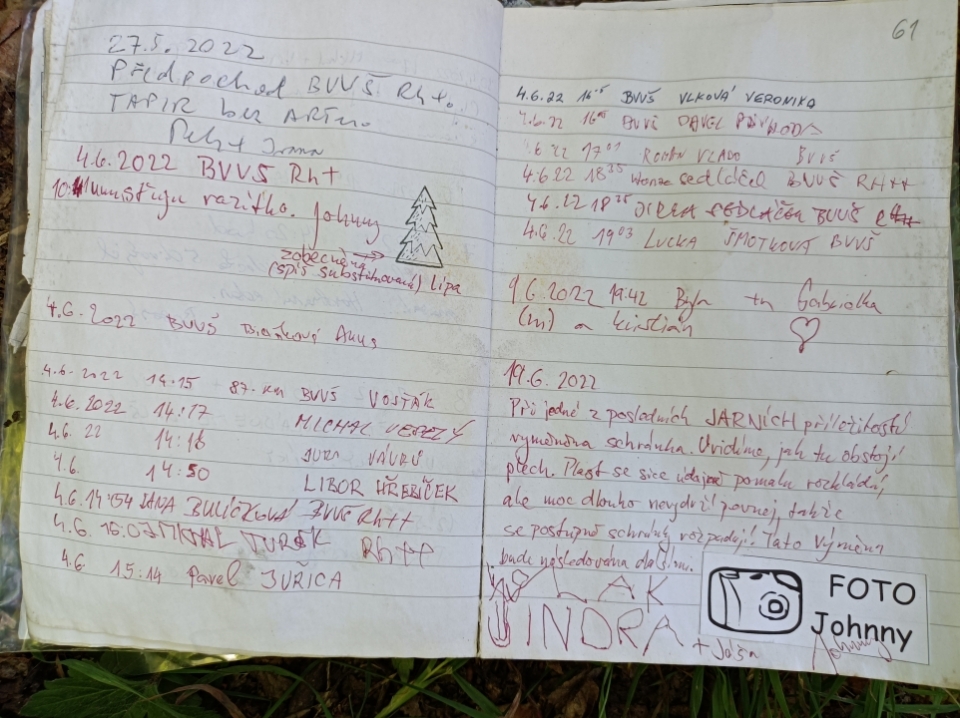 27.5. 2022
Předpochod BVVŠ Rh+.
TAPIR bez
4.6.2022 BVVŠ Rh+
umisťuju razítko. Johnny
zobecněná
(spíš substituovaná) lípa
4.6.2022 BVVŠ
4.6.2022 14:15 87. km BVVŠ VOSTÁK
4.6.2022 14:17 MICHAL VESELÝ
4.6.22 14:18 VÁVRŮ
4.6. 14:50 LIBOR HŘEBÍČEK
4.6. 14:54 HANA BVVŠ Rh++
4.6. TUREK Rh++
4.6 15:14 Pavel JUŘICA
61
4.6.22 BVVŠ VLKOVÁ VERONIKA
4.6.22 BVVŠ PAVEL PŘÍVORA
17 ROMAN VLADO BVVŠ
4.6.22 18 35 Honza sedláček BVVŠ RH++
4.6.22 18 35 JIRKA SEDLÁČEK BVVŠ
4.6.22 19 03 LUCKA ŠMOTKOVÁ BVVŠ
9.6.2022 19:42 Byla tu Gabrielka
(m) a kristián
19.6.2022
Při jedné z posledních JARNÍCH příležitostí
vyměněna schránka. Uvidíme, jak tu obstojí
plech. Plast se sice údajně pomalu rozkládá,
ale moc dlouho nevydrží pevnej, takže
se postupně schránky rozpadají. Tato výměna
bude následována dalšími.
LAK
JINDRA +
FOTO
Johnny
Johnny